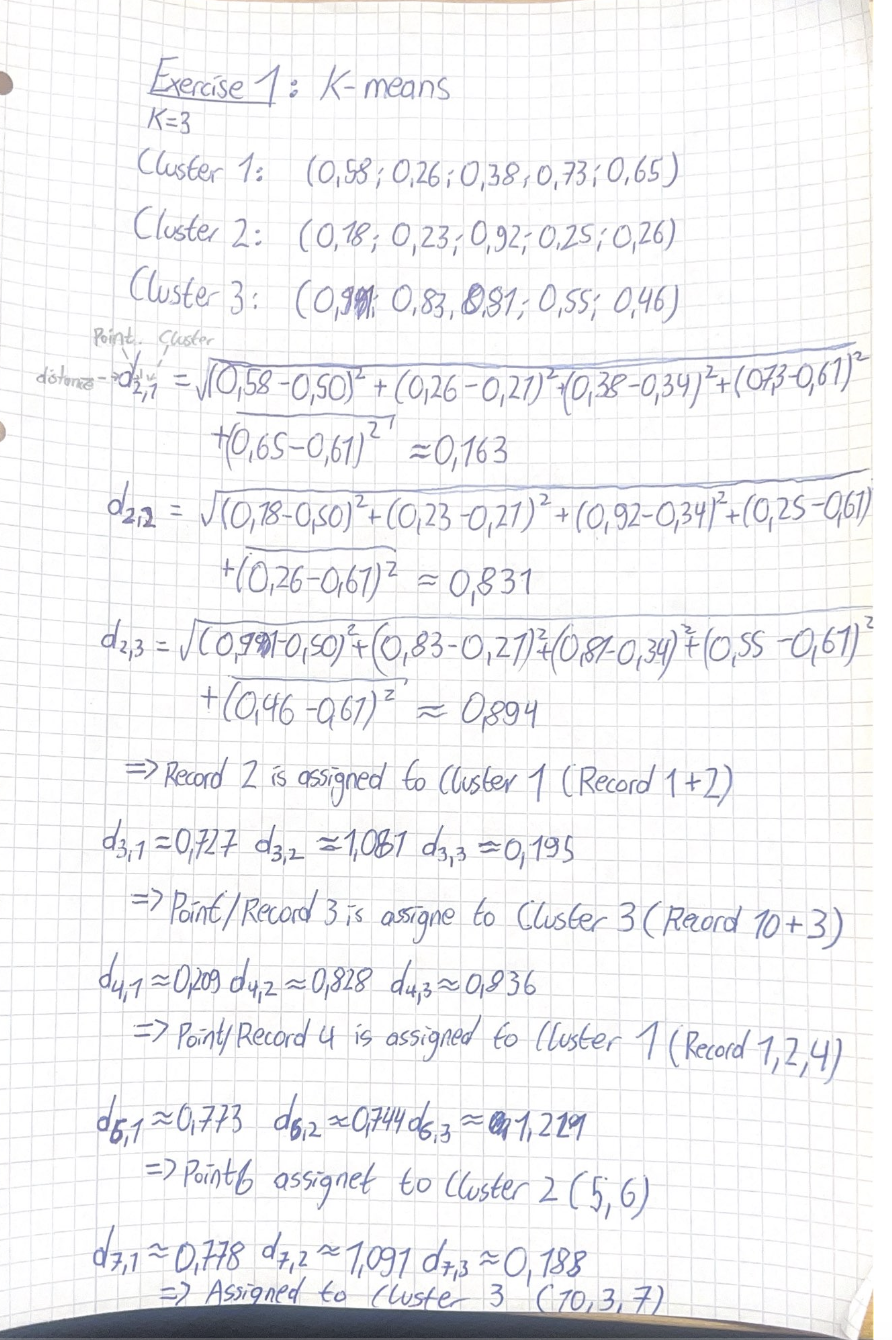 Exercise 1: K-means
K=3
Cluster 1: (0,58; 0,26; 0,38; 0,73; 0,65)
Cluster 2: (0,18; 0,23; 0,92; 0,25; 0,26)
Cluster 3: (0,991; 0,83, 0,81; 0,55; 0,46)
Point Cluster
distance → d2,1 = √(0,58-0,50)² + (0,26-0,21)² + (0,38-0,34)² + (0,73-0,61)²
+(0,65-0,61)² ≈ 0,163
d2,2 = √(0,18-0,50)² + (0,23-0,21)² + (0,92-0,34)² + (0,25-0,61)
+(0,26-0,61)² ≈ 0,831
d2,3 = √(0,991-0,50)² + (0,83-0,21)² + (0,81-0,34)² + (0,55-0,61)²
+(0,46-0,61)² ≈ 0,894
=> Record 2 is assigned to Cluster 1 (Record 1+2)
d3,1 = 0,727 d3,2 ≈ 1,081 d3,3 ≈ 0,195
=> Point/Record 3 is assigne to Cluster 3 (Record 10+3)
d4,1 ≈ 0,209 d4,2 ≈ 0,828 d4,3 ≈ 0,836
=> Point/Record 4 is assigned to Cluster 1 (Record 1,2,4)
d6,1 ≈ 0,773 d6,2 ≈ 0,744 d6,3 ≈ 1,219
=> Point 6 assignet to Cluster 2 (5,6)
d7,1 ≈ 0,778 d7,2 ≈ 1,091 d7,3 ≈ 0,188
=> Assigned to Cluster 3 (10,3,7)